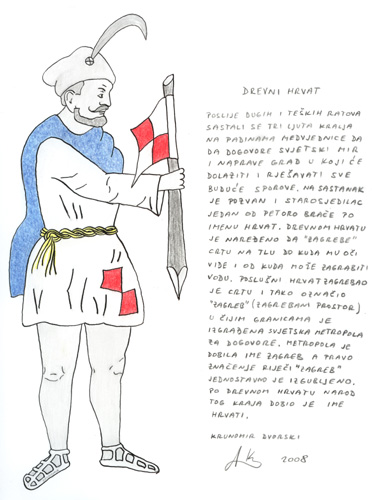 DREVNI HRVAT
POSLIJE DUGIH I TEŠKIH RATOVA
SASTALI SE TRI LJUTA KRALJA
NA PADINAMA MEDVJEDNICE DA
DA DOGOVORE SVJETSKI MIR
I NAPRAVE GRAD U KOJI ĆE
DOLAZITI I RJEŠAVATI SVE
BUDUĆE SPOROVE. NA SASTANAK
JE POZVAN I STAROSJEDILAC
JEDAN OD PETORO BRAČE PO
IMENU HRVAT. DREVNOM HRVATU
JE NAREĐENO DA "ZAGREBE"
CRTU NA TLU DO KUDA MU OČI
VIDE I OD KUDA MOŠE ZAGRABITI
VODU. POSLUŠNI HRVAT ZAGREBAO
JE CRTU I TAKO OZNAČIO
"ZAGREB" (ZAGREBANI PROSTOR)
U ČIJIM GRANICAMA JE
IZGRAĐENA SVJETSKA METROPOLA
ZA DOGOVORE. METROPOLA JE
DOBILA IME ZAGREB A PRAVO
ZNAČENJE RIJEČI "ZAGREB"
JEDNOSTAVNO JE IZGUBLJENO.
PO DREVNOM HRVATU NAROD
TOG KRAJA DOBIO JE IME
HRVATI.
KRUNOMIR DVORSKI
2008